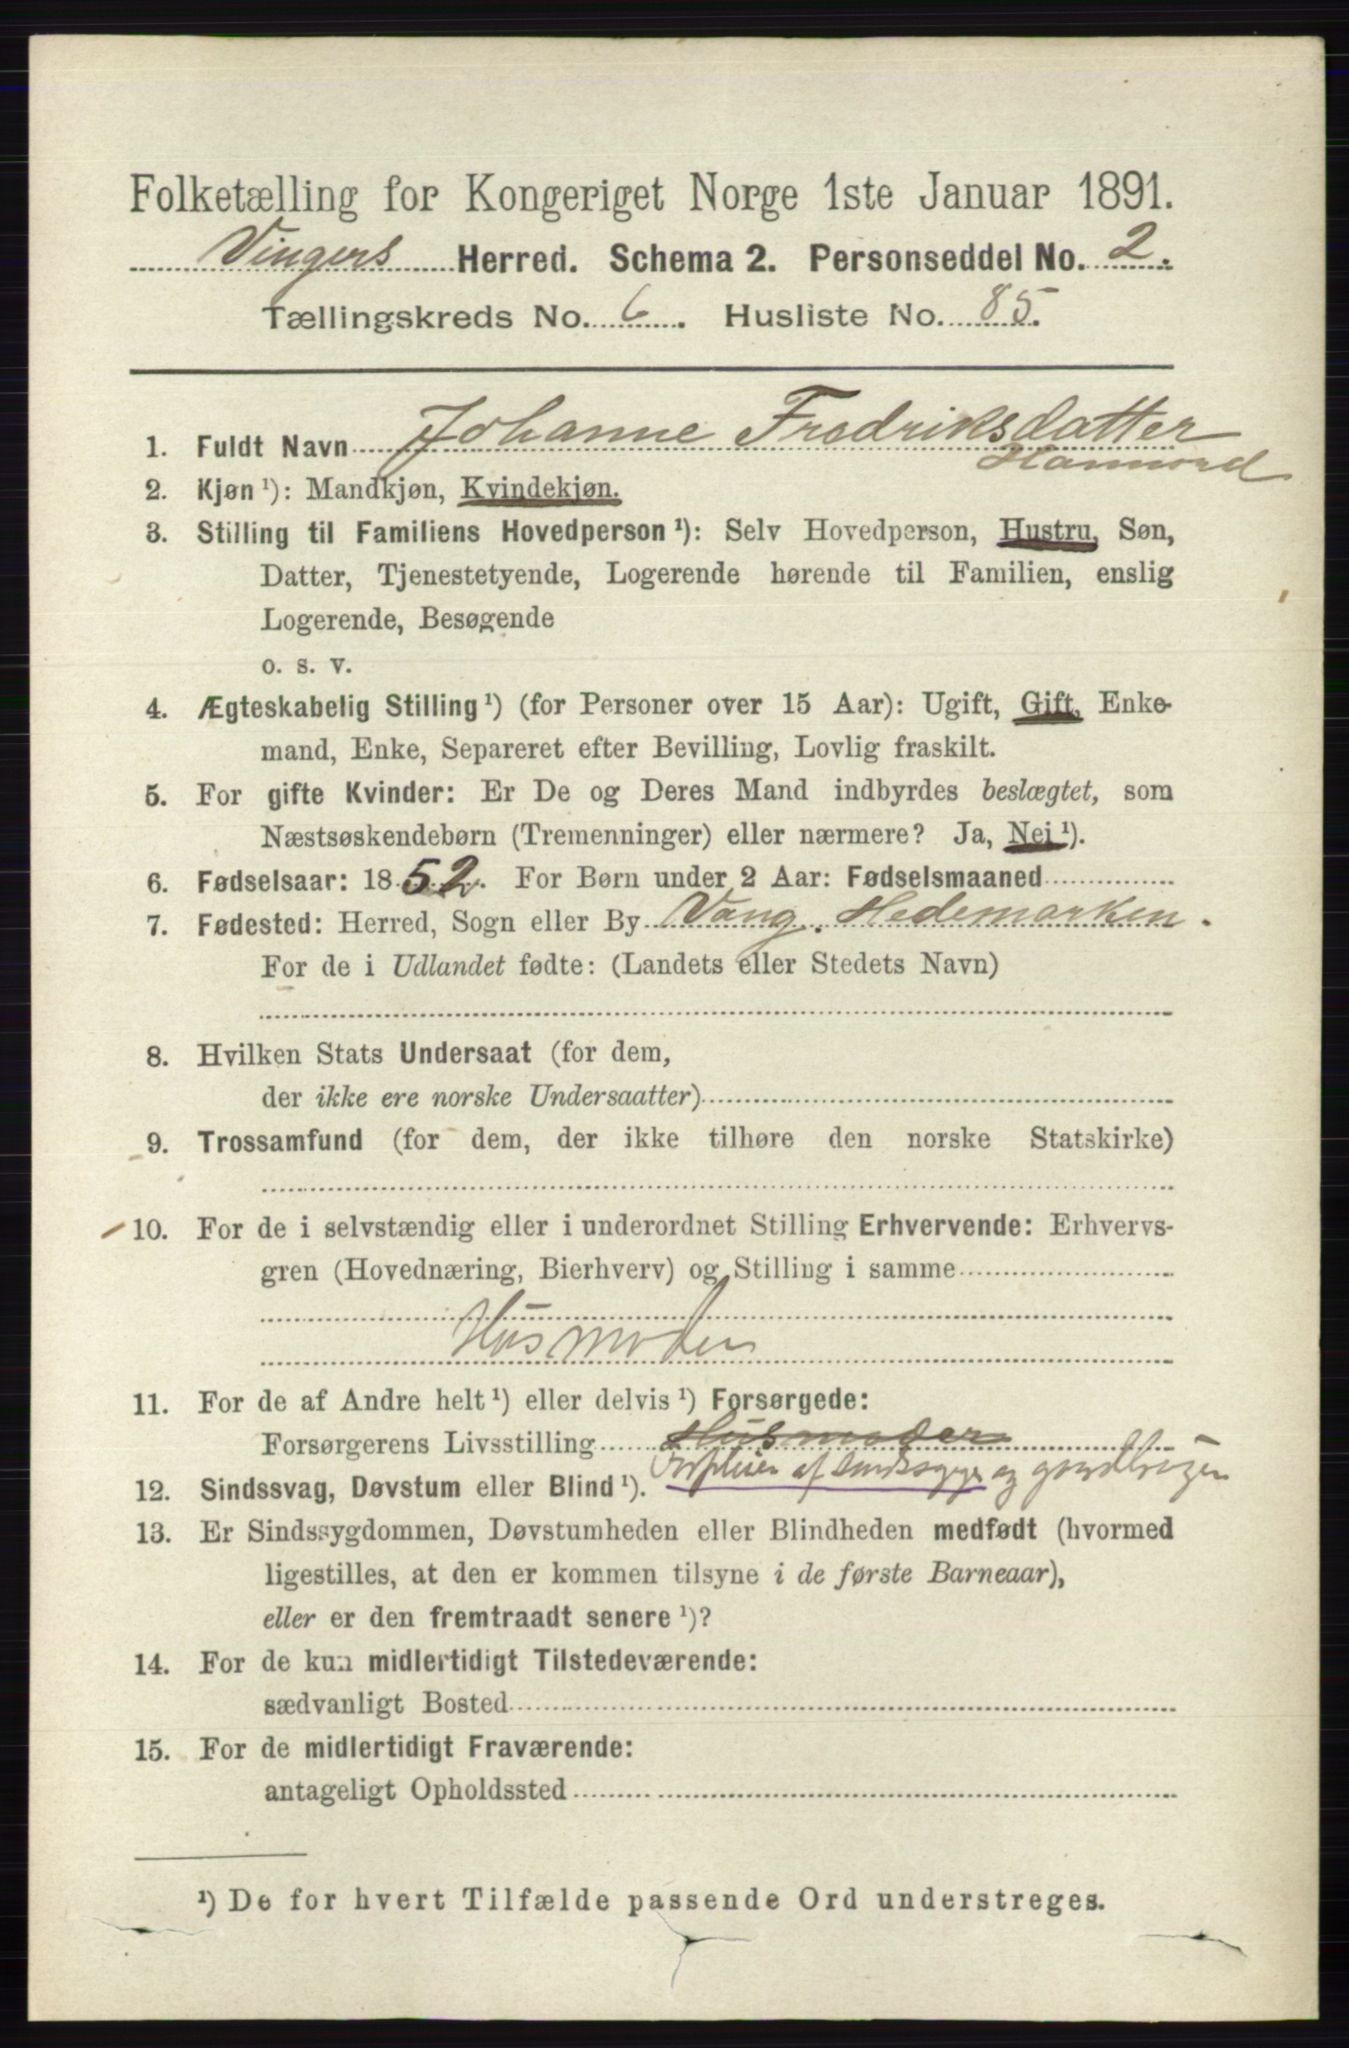 Folketælling for Kongeriget Norge 1ste Januar 1891.
Vingers Herred. Schema 2. Personseddel No. 2.
Tællingskreds No. 6. Husliste No. 85.
1. Fuldt Navn Johanne Fredriksdatter
2. Kjøn ¹): Mandkjøn, Kvindekjøn.
3. Stilling til Familiens Hovedperson ¹): Selv Hovedperson, Hustru, Søn,
Datter, Tjenestetyende, Logerende hørende til Familien, enslig
Logerende, Besøgende
o. s. v.
4. Ægteskabelig Stilling ¹) (for Personer over 15 Aar): Ugift, Gift, Enke-
mand, Enke, Separeret efter Bevilling, Lovlig fraskilt.
5. For gifte Kvinder: Er De og Deres Mand indbyrdes beslægtet, som
Næstsøskendebørn (Tremenninger) eller nærmere? Ja, Nei ¹).
6. Fødselsaar: 1852. For Børn under 2 Aar: Fødselsmaaned
7. Fødested: Herred, Sogn eller By Vang. Hedemarken.
For de i Udlandet fødte: (Landets eller Stedets Navn)
8. Hvilken Stats Undersaat (for dem,
der ikke ere norske Undersaatter)
9. Trossamfund (for dem, der ikke tilhøre den norske Statskirke)
10. For de i selvstændig eller i underordnet Stilling Erhvervende: Erhvervs-
gren (Hovednæring, Bierhverv) og Stilling i samme
Husmoder
11. For de af Andre helt ¹) eller delvis ¹) Forsørgede:
Forsørgerens Livsstilling Husmoder
af Sindssyge og gaardbruger
12. Sindssvag, Døvstum eller Blind ¹).
13. Er Sindssygdommen, Døvstumheden eller Blindheden medfødt (hvormed
ligestilles, at den er kommen tilsyne i de første Barneaar),
eller er den fremtraadt senere ¹)?
14. For de kun midlertidigt Tilstedeværende:
sædvanligt Bosted
15. For de midlertidigt Fraværende:
antageligt Opholdssted
¹) De for hvert Tilfælde passende Ord understreges.